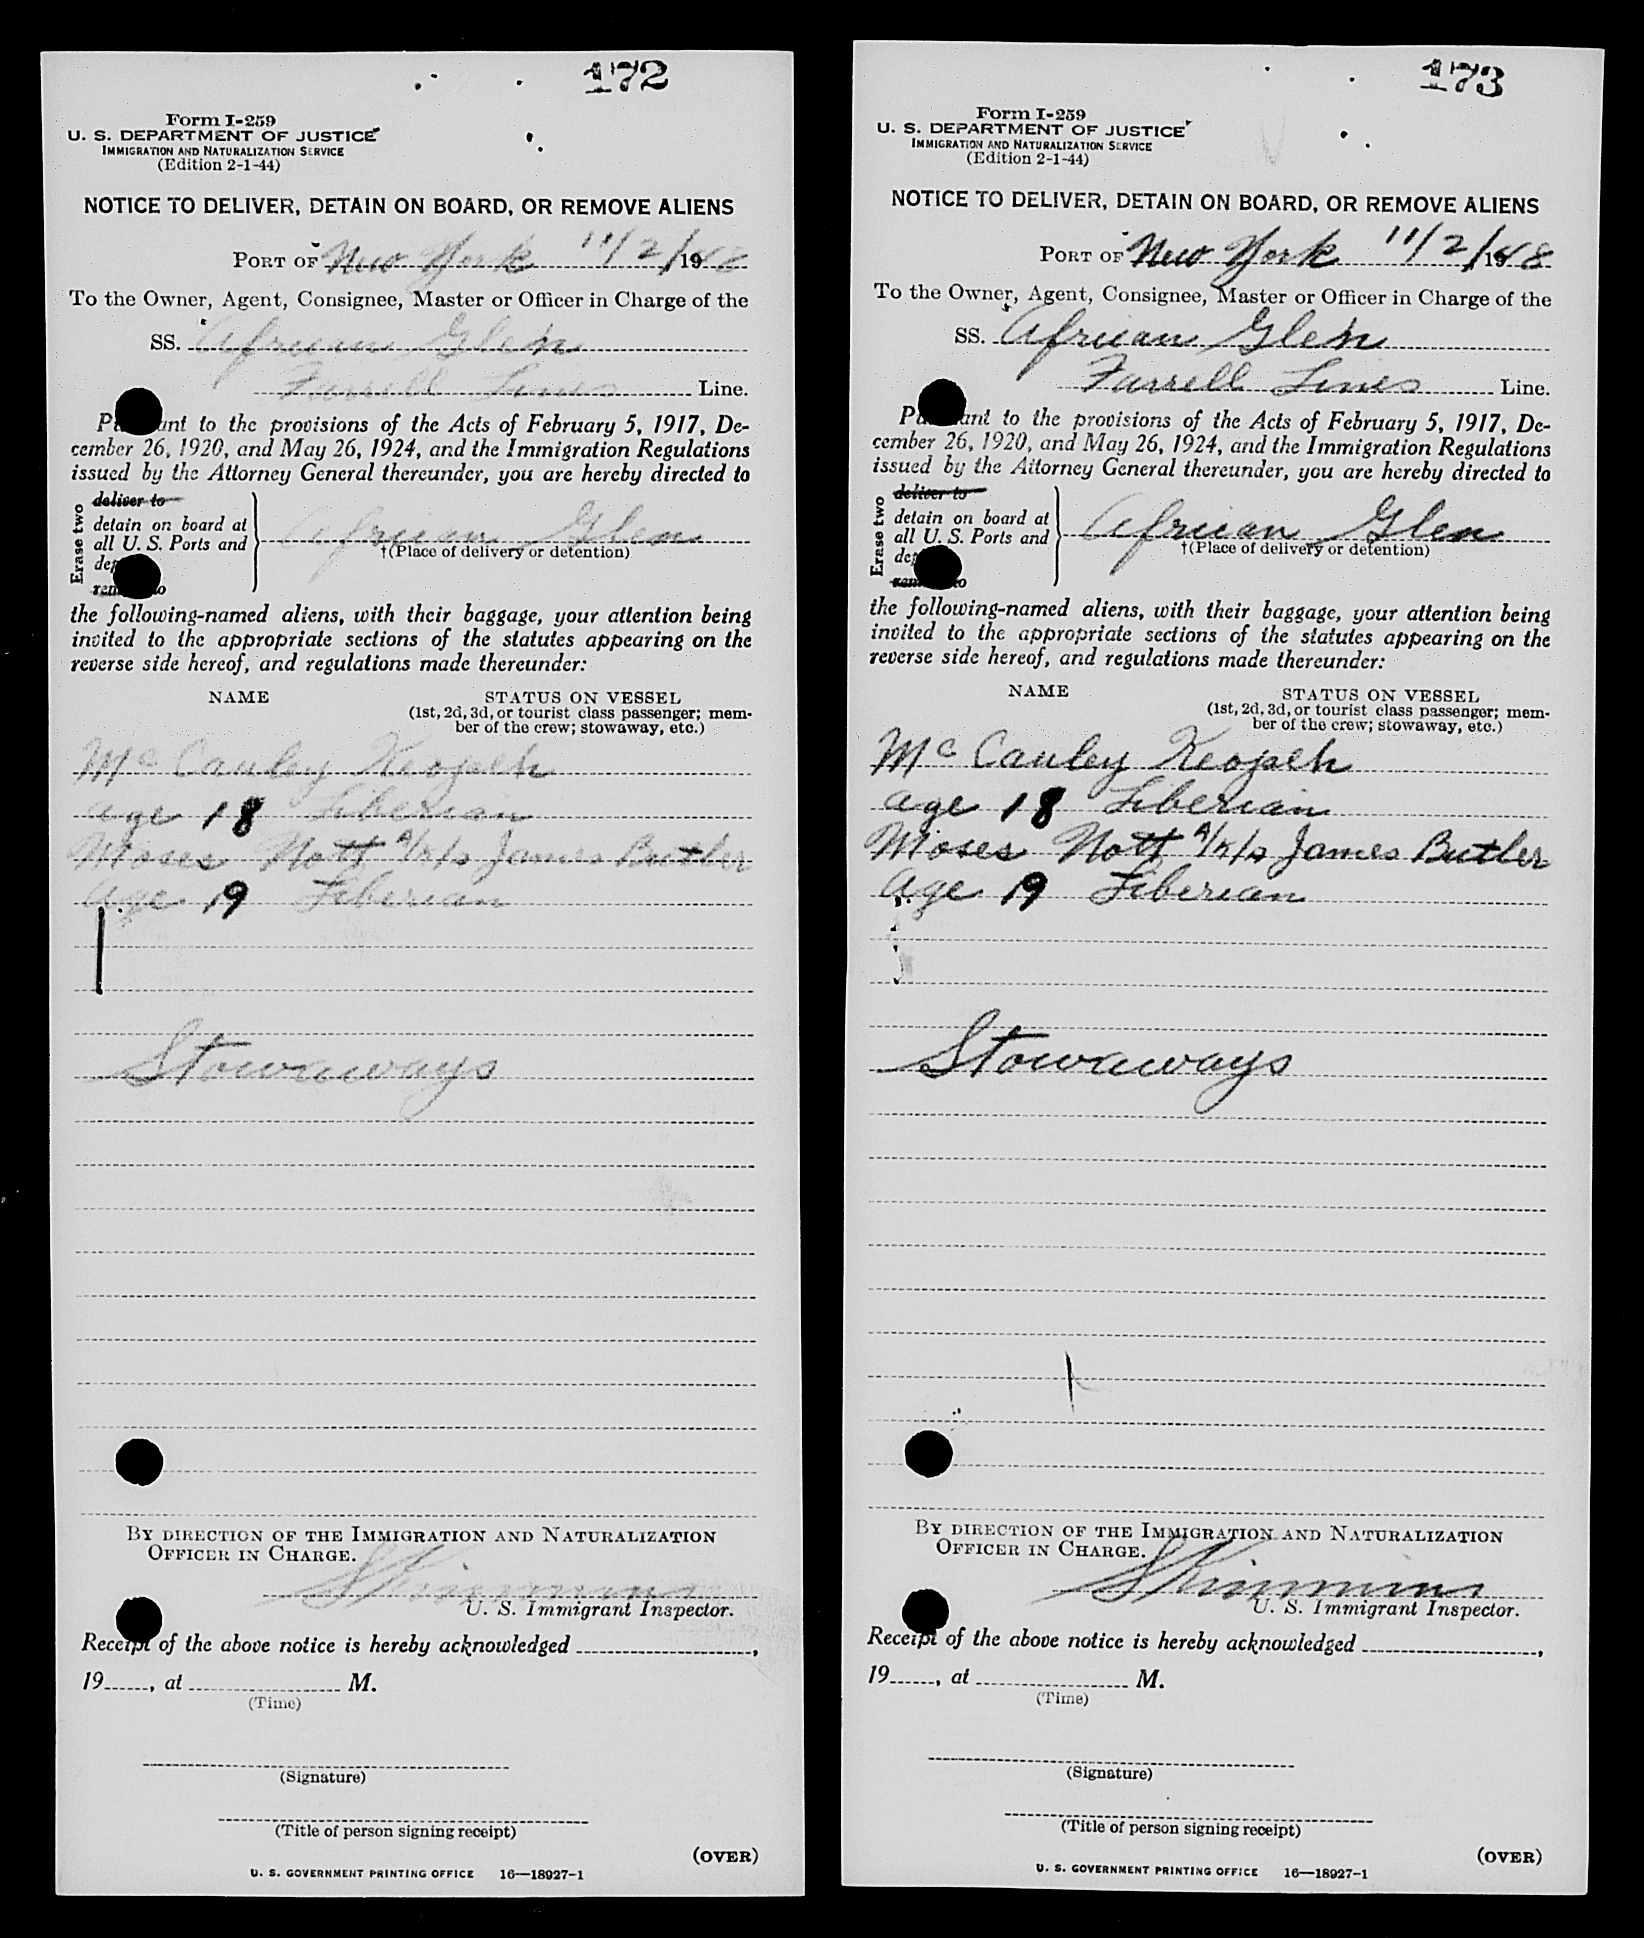 172
Form I-259
U. S. DEPARTMENT OF JUSTICE
IMMIGRATION AND NATURALIZATION SERVICE
(Edition 2-1-44)
NOTICE TO DELIVER, DETAIN ON BOARD, OR REMOVE ALIENS
PORT OF New York 11/2/1948
To the Owner, Agent, Consignee, Master or Officer in Charge of the
SS. African Glen
Farrell Lines Line.
to the provisions of the Acts of February 5, 1917, De-
cember 26, 1920, and May 26, 1924, and the Immigration Regulations
issued by the Attorney General thereunder, you are hereby directed to
Erase two
deliver to
detain on board at
all U. S. Ports and
African Glen
†(Place of delivery or detention)
the following-named aliens, with their baggage, your attention being
invited to the appropriate sections of the statutes appearing on the
reverse side hereof, and regulations made thereunder:
NAME STATUS ON VESSEL
(1st, 2d, 3d, or tourist class passenger; mem-
ber of the crew; stowaway, etc.)
Mc Cauley Keopeh
age 18 Liberian
Moses Nott A/K/a James Butler
age 19 Liberian
Stowaways
BY DIRECTION OF THE IMMIGRATION AND NATURALIZATION
OFFICER IN CHARGE.
U. S. Immigrant Inspector.
Receipt of the above notice is hereby acknowledged ,
19 , at M.
(Time)
(Signature)
(Title of person signing receipt)
(OVER)
U. S. GOVERNMENT PRINTING OFFICE 16—18927-1
173
Form I-259
U. S. DEPARTMENT OF JUSTICE
IMMIGRATION AND NATURALIZATION SERVICE
(Edition 2-1-44)
NOTICE TO DELIVER, DETAIN ON BOARD, OR REMOVE ALIENS
PORT OF New York 11/2/1948
To the Owner, Agent, Consignee, Master or Officer in Charge of the
SS. African Glen
Farrell Lines Line.
to the provisions of the Acts of February 5, 1917, De-
cember 26, 1920, and May 26, 1924, and the Immigration Regulations
issued by the Attorney General thereunder, you are hereby directed to
Erase two
deliver to
detain on board at
all U. S. Ports and
African Glen
†(Place of delivery or detention)
the following-named aliens, with their baggage, your attention being
invited to the appropriate sections of the statutes appearing on the
reverse side hereof, and regulations made thereunder:
NAME STATUS ON VESSEL
(1st, 2d, 3d, or tourist class passenger; mem-
ber of the crew; stowaway, etc.)
Mc Cauley Keopeh
age 18 Liberian
Moses Nott A/K/a James Butler
age 19 Liberian
Stowaways
BY DIRECTION OF THE IMMIGRATION AND NATURALIZATION
OFFICER IN CHARGE.
U. S. Immigrant Inspector.
Receipt of the above notice is hereby acknowledged ,
19 , at M.
(Time)
(Signature)
(Title of person signing receipt)
(OVER)
U. S. GOVERNMENT PRINTING OFFICE 16—18927-1